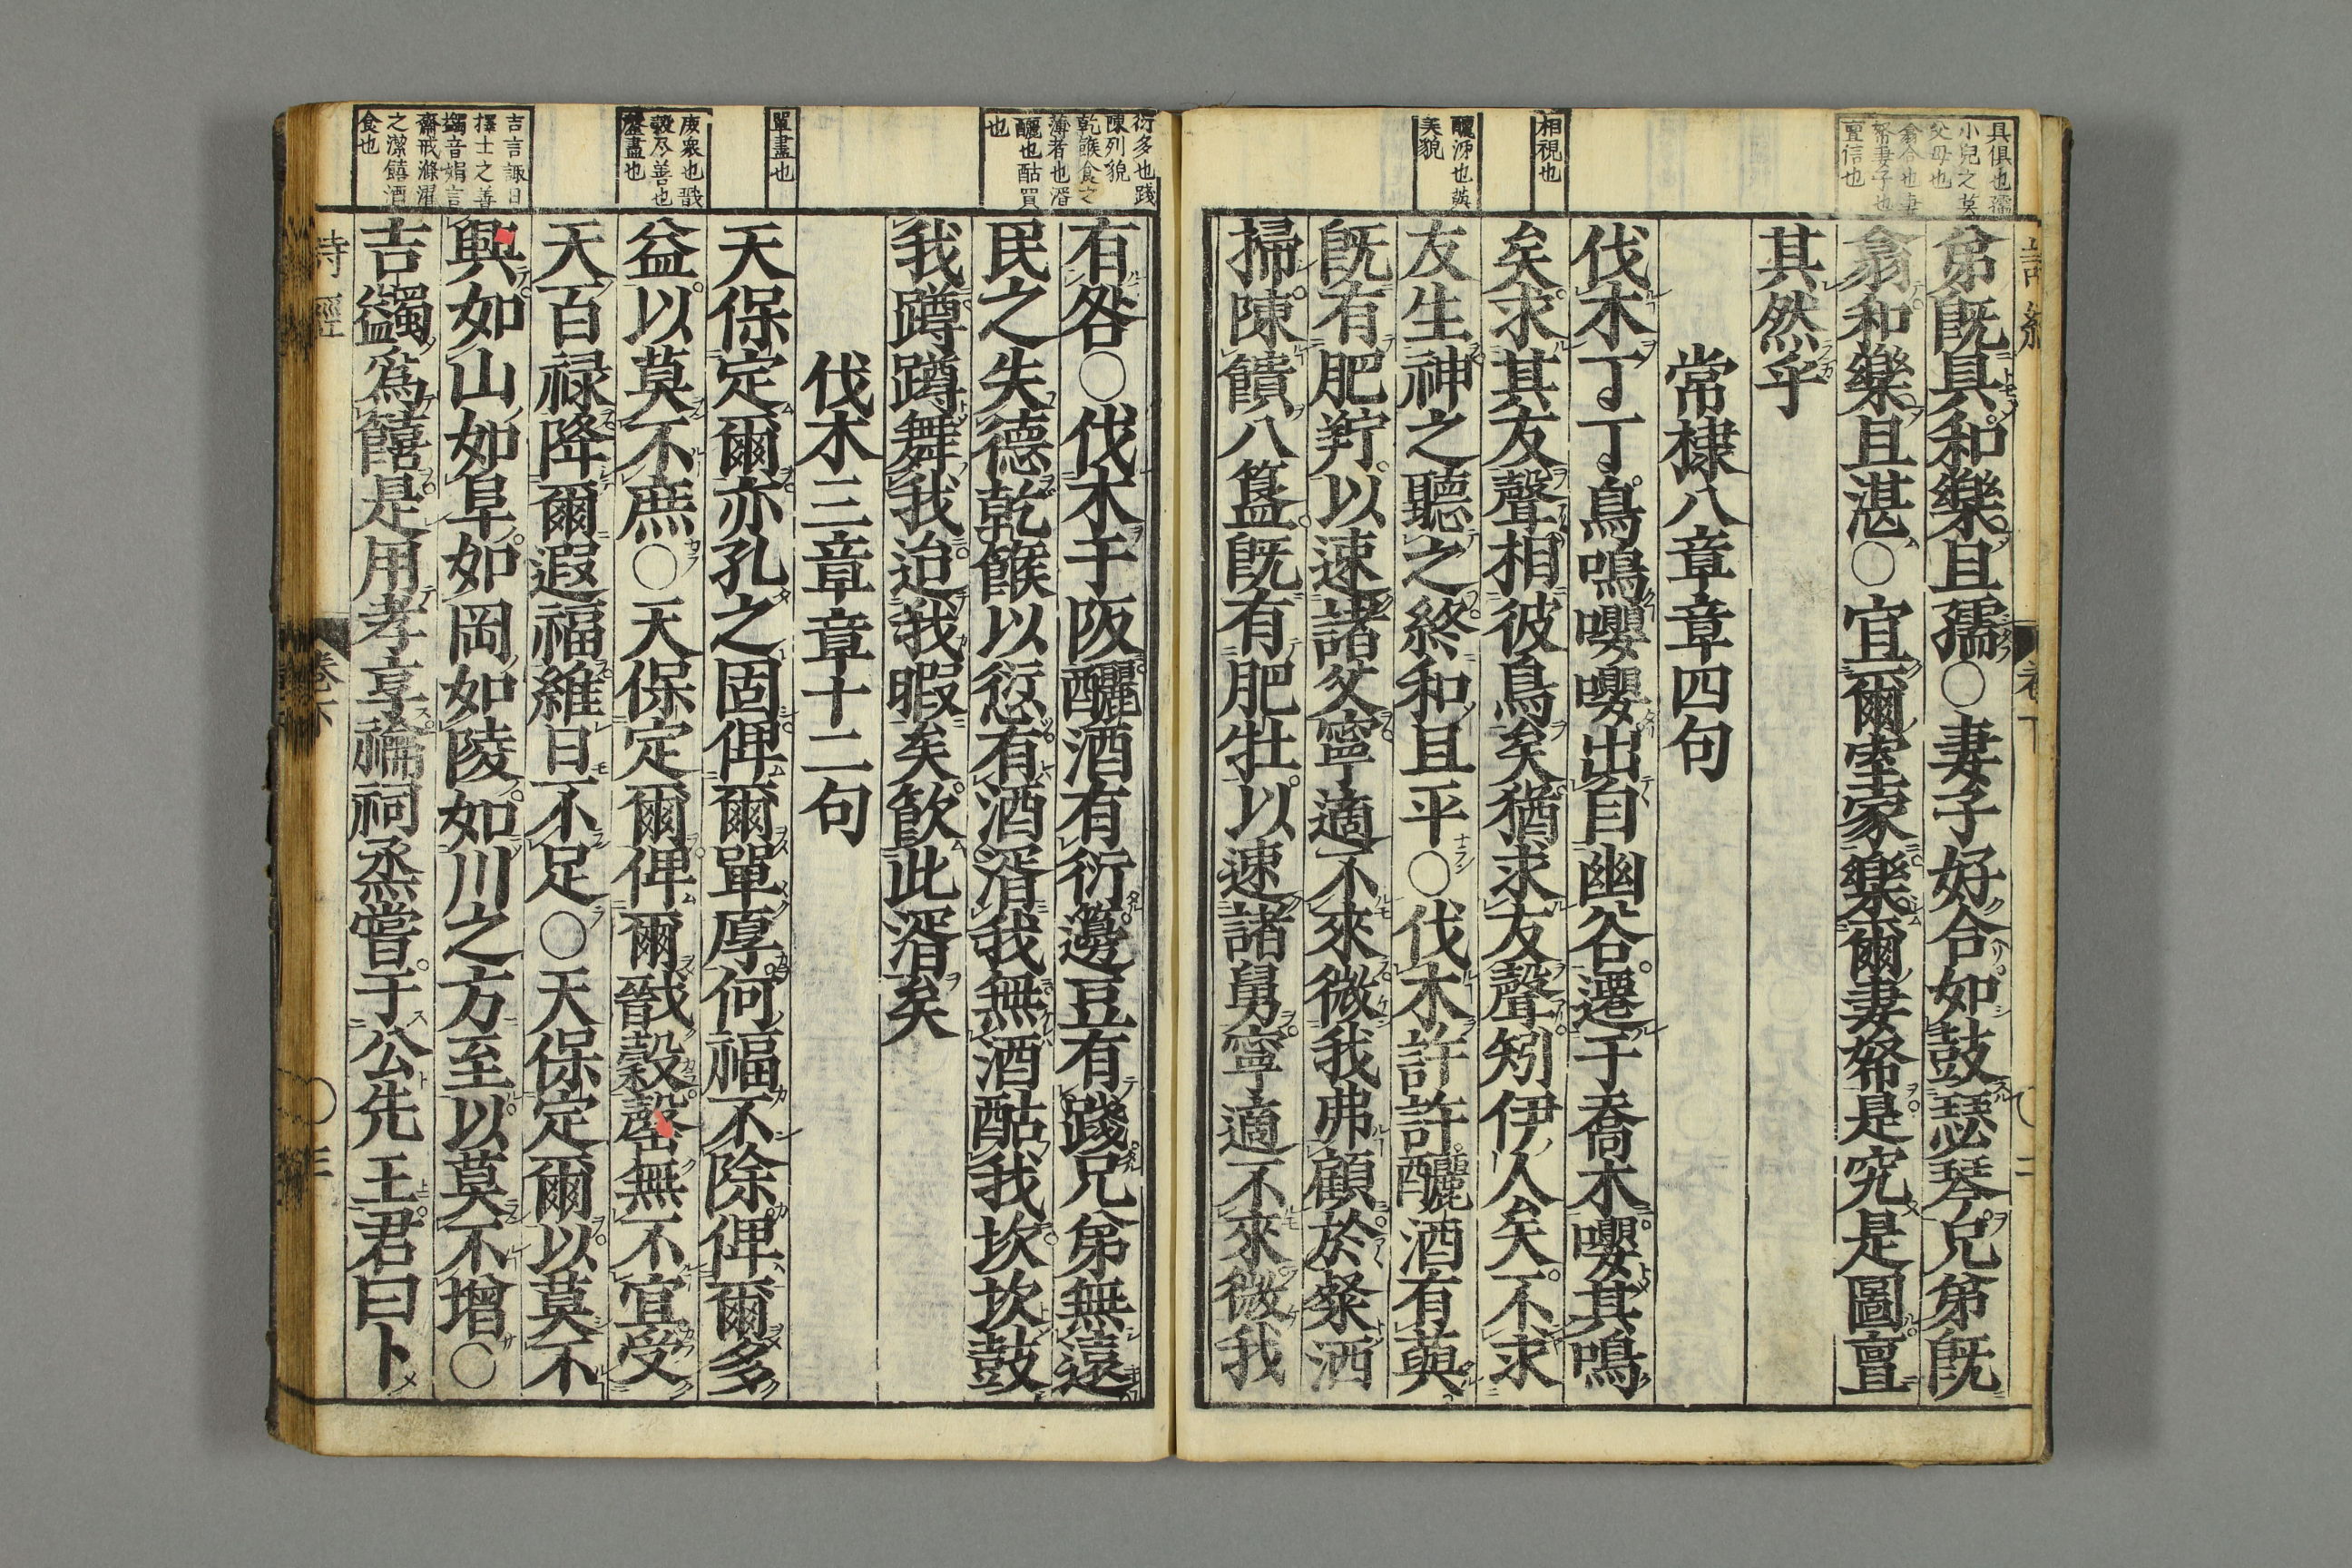 具俱也孺
小兒之莫
父母也
翕合也妻
帑妻子也
亶信也
相視也
釃泲也藇
美貌
弟既具和樂且孺○妻子好合如鼓瑟琴兄弟既
翕和樂且湛○宜爾室家樂爾妻帑是究是圖亶
其然乎
常棣八章章四句
伐木丁丁鳥鳴嚶嚶出自幽谷遷于喬木嚶其鳴
矣求其友聲相彼鳥矣猶求友聲矧伊人矣不求
友生神之聽之終和且平○伐木許許釃酒有藇
既有肥羜以速諸父寧適不來微我弗顧於粲洒
掃陳饋八簋既有肥牡以速諸舅寧適不來微我
衍多也踐
陳列貌
乾餱食之
薄者也湑
釃也酤買
也
單盡也
庶衆也戩
穀尽善也
罄盡也
吉言諏日
擇士之善
蠲音娟言
齋戒滌濯
之潔饎酒
食也
有咎○伐木于阪釃酒有衍籩豆有踐兄弟無遠
民之失德乾餱以愆有酒湑我無酒酤我坎坎鼓
我蹲蹲舞我迨我暇矣飲此湑矣
伐木三章章十二句
天保定爾亦孔之固俾爾單厚何福不除俾爾多
益以莫不庶○天保定爾俾爾戩穀罄無不宜受
天百禄降爾遐福維日不足○天保定爾以莫不
興如山如阜如岡如陵如川之方至以莫不增○
吉蠲爲饎是用孝享禴祠烝嘗于公先王君曰卜
詩經
卷下
○三